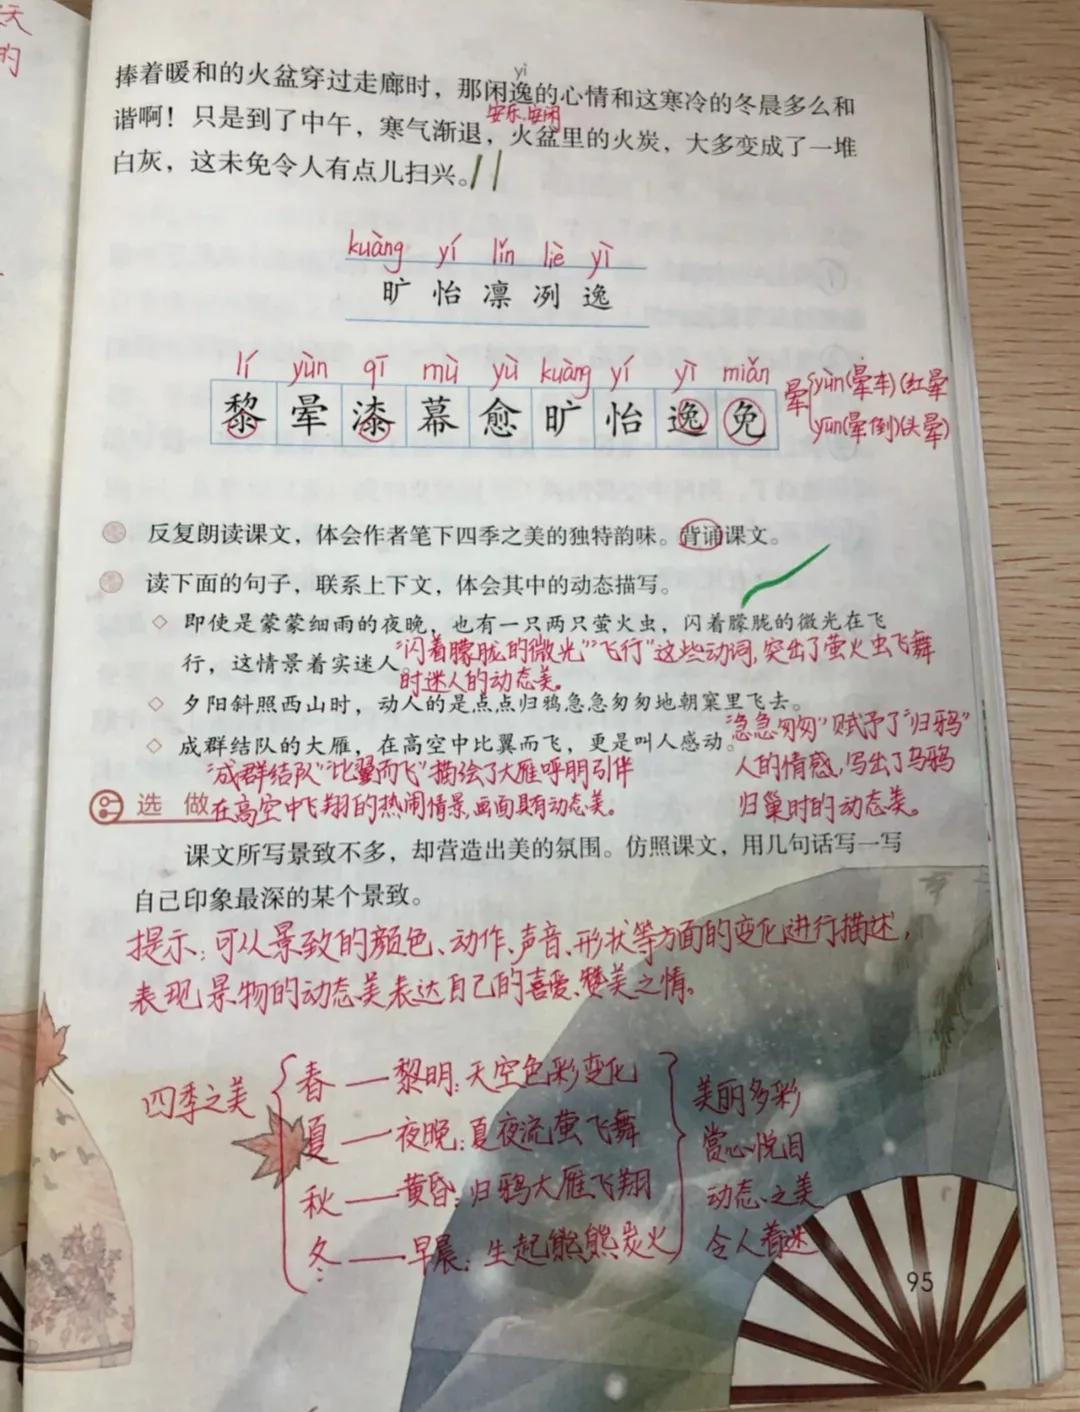 天
的
捧着暖和的火盆穿过走廊时，那闲逸的心情和这寒冷的冬晨多么和
yì
安乐、安闲
谐啊！只是到了中午，寒气渐退，火盆里的火炭，大多变成了一堆
白灰，这未免令人有点儿扫兴。
kuàng yí lǐn liè yì
旷 怡 凛 冽 逸
lí yùn qī mù yù kuàng yí yì miǎn
黎 晕 漆 幕 愈 旷 怡 逸 免
晕 yùn(晕车)(红晕
yūn(晕倒)(头晕)
反复朗读课文，体会作者笔下四季之美的独特韵味。背诵课文。
读下面的句子，联系上下文，体会其中的动态描写。
◇ 即使是蒙蒙细雨的夜晚，也有一只两只萤火虫，闪着朦胧的微光在飞
行，这情景着实迷人。
“闪着朦胧的微光”“飞行”这些动词，突出了萤火虫飞舞
时迷人的动态美。
◇ 夕阳斜照西山时，动人的是点点归鸦急急匆匆地朝窠里飞去。
“急急匆匆”赋予了“归鸦”
人的情感，写出了乌鸦
归巢时的动态美。
◇ 成群结队的大雁，在高空中比翼而飞，更是叫人感动。
“成群结队”“比翼而飞”描绘了大雁呼朋引伴
在高空中飞翔的热闹情景，画面具有动态美。
选做
课文所写景致不多，却营造出美的氛围。仿照课文，用几句话写一写
自己印象最深的某个景致。
提示：可从景致的颜色、动作、声音、形状等方面的变化进行描述，
表现景物的动态美表达自己的喜爱、赞美之情。
四季之美
春 — 黎明：天空色彩变化
夏 — 夜晚：夏夜流萤飞舞
秋 — 黄昏：归鸦大雁飞翔
冬 — 早晨：生起熊熊炭火
美丽多彩
赏心悦目
动态之美
令人着迷
95